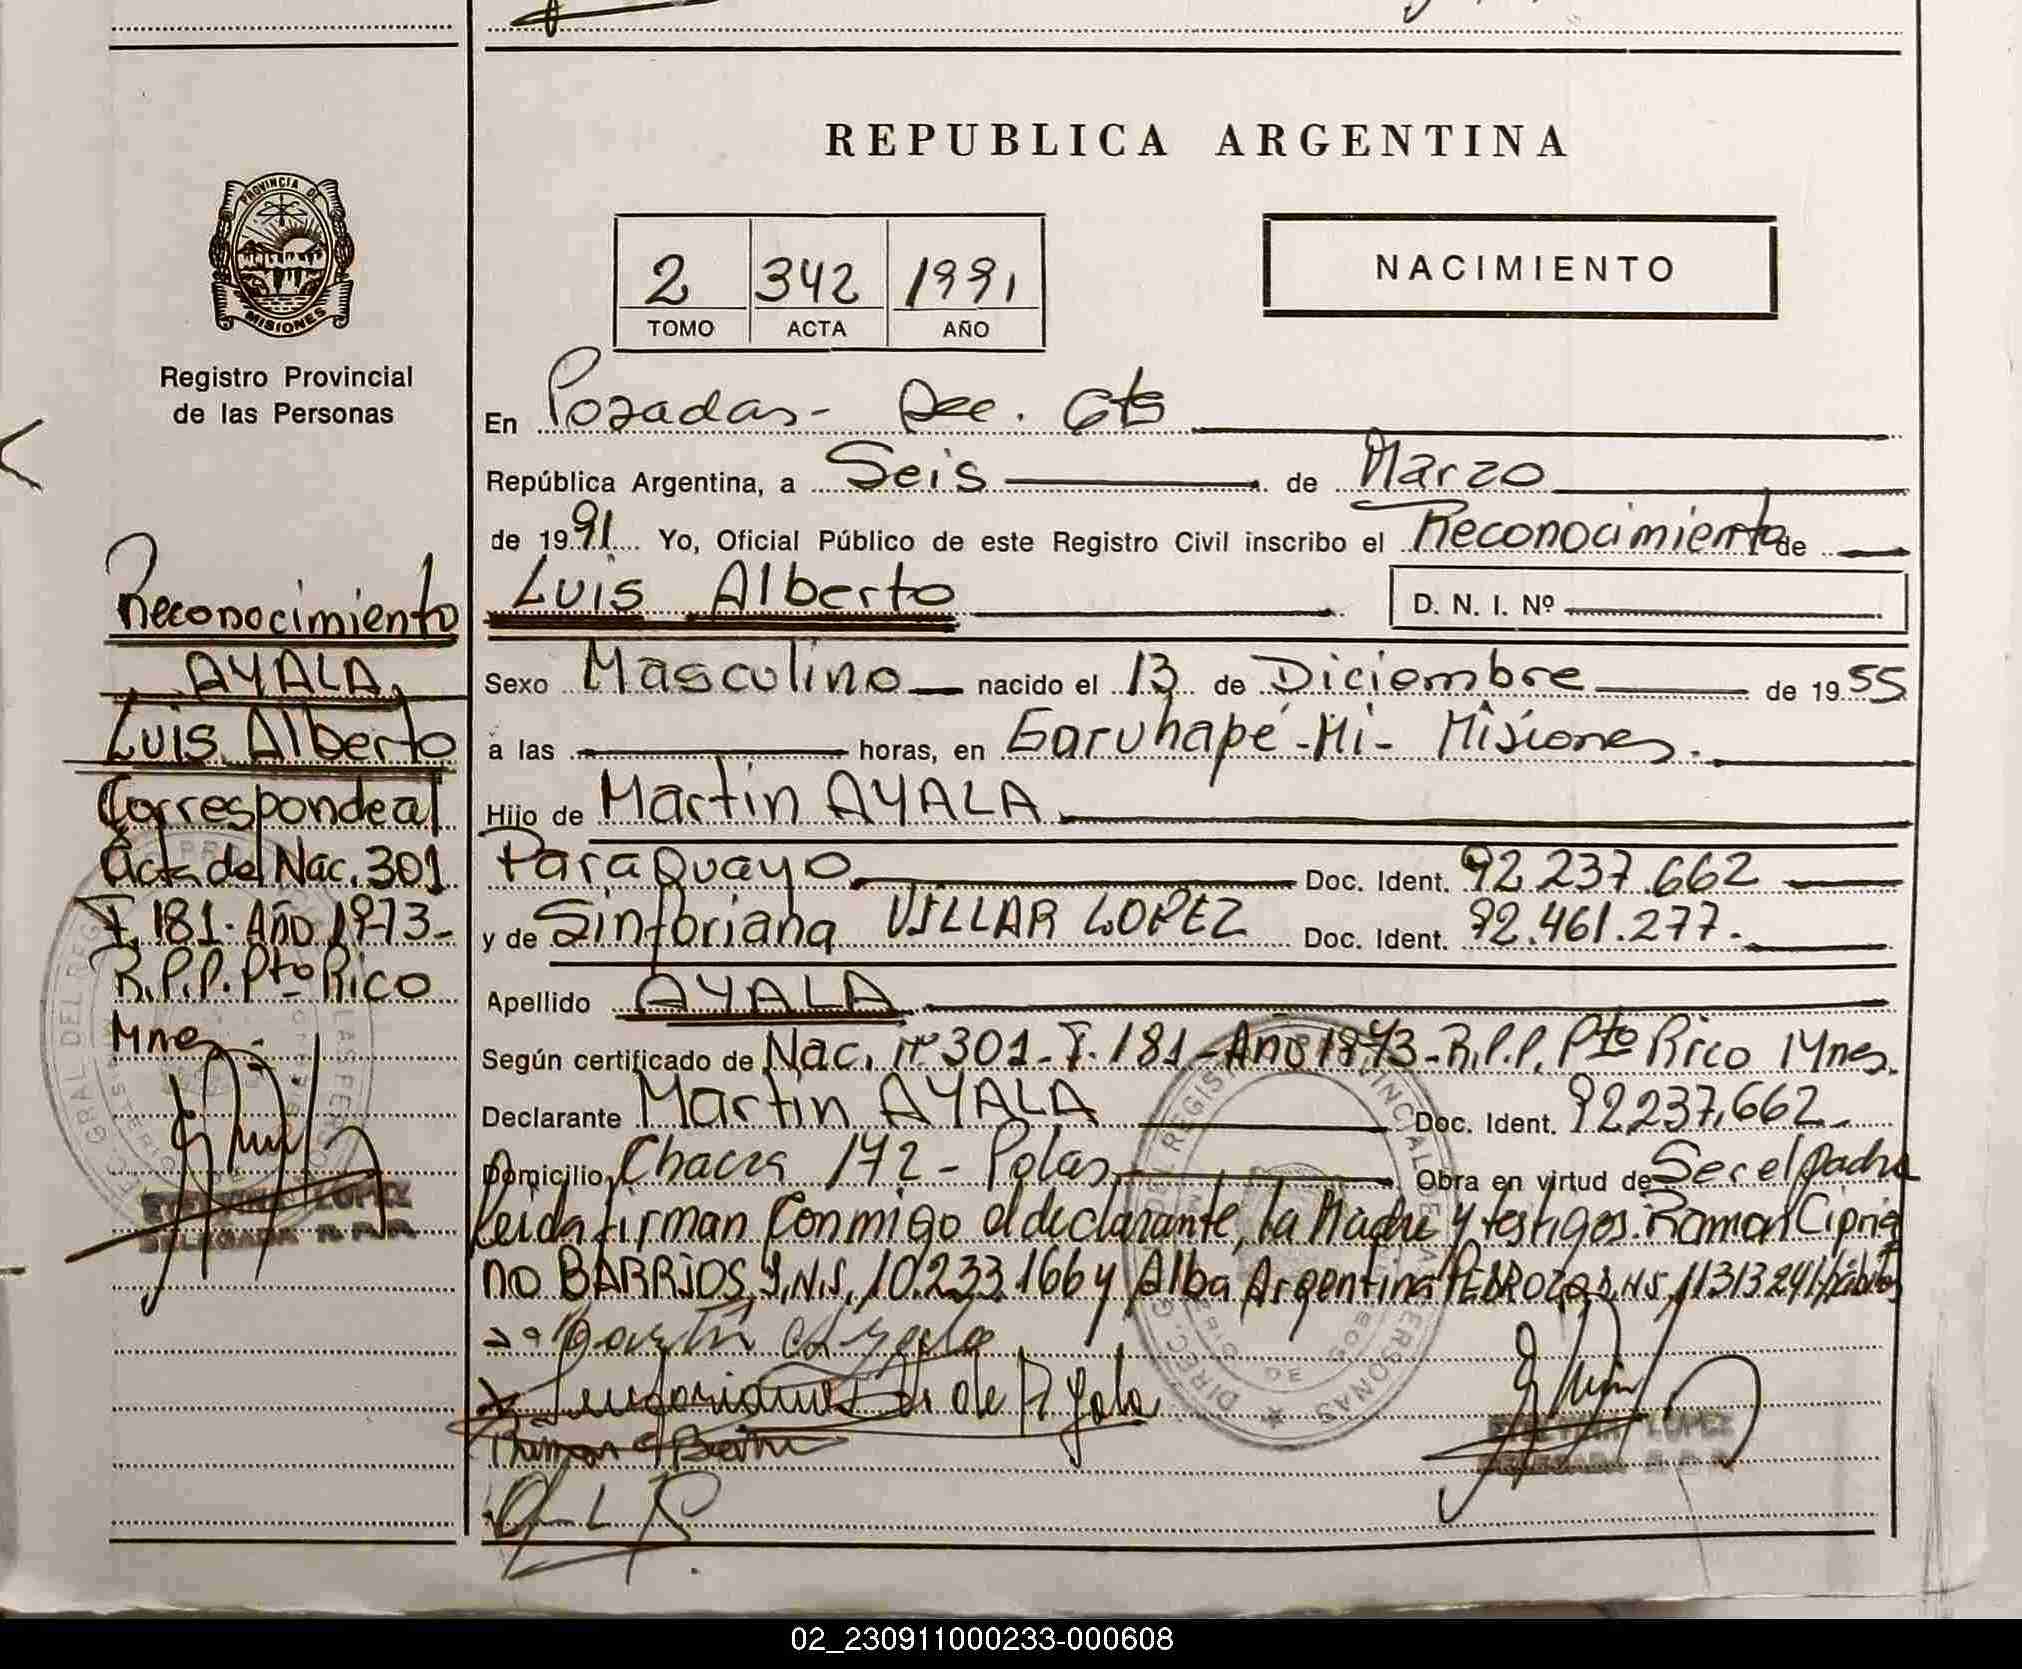 REPUBLICA ARGENTINA
PROVINCIA DE
MISIONES
Registro Provincial
de las Personas
2 342 1991
TOMO ACTA AÑO
NACIMIENTO
En Posadas - Sec. 6ta
República Argentina, a Seis de Marzo
de 1991 Yo, Oficial Público de este Registro Civil inscribo el Reconocimiento de
Luis Alberto D. N. I. Nº
Sexo Masculino nacido el 13 de Diciembre de 1955
a las horas, en Garuhapé - Mi - Misiones.
Hijo de Martin AYALA
Paraguayo Doc. Ident. 92.237.662
y de Sinforiana VILLAR LOPEZ Doc. Ident. 92.461.277.
Apellido AYALA
Según certificado de Nac. nº 301 - T. 181 - Año 1973 - R.P.P. Pto Rico Mnes.
Declarante Martin AYALA Doc. Ident. 92237,662
Domicilio Chacra 172 - Pdas, Obra en virtud de Ser el padre
Leida firman conmigo el declarante, la Madre y testigos. Ramon Cipria
no BARRIOS, D.N.I. 10.233.166 y Alba Argentina PEDROZO D.N.I. 11313241 hábiles
Reconocimiento
AYALA,
Luis Alberto
Corresponde al
Acta de Nac. 301
T. 181. Año 1973 -
R.P.P. Pto Rico
Mnes.
LOPEZ
DELEGADA R.P.P.
de Ayala
LOPEZ
DELEGADA R.P.P.
02_230911000233-000608